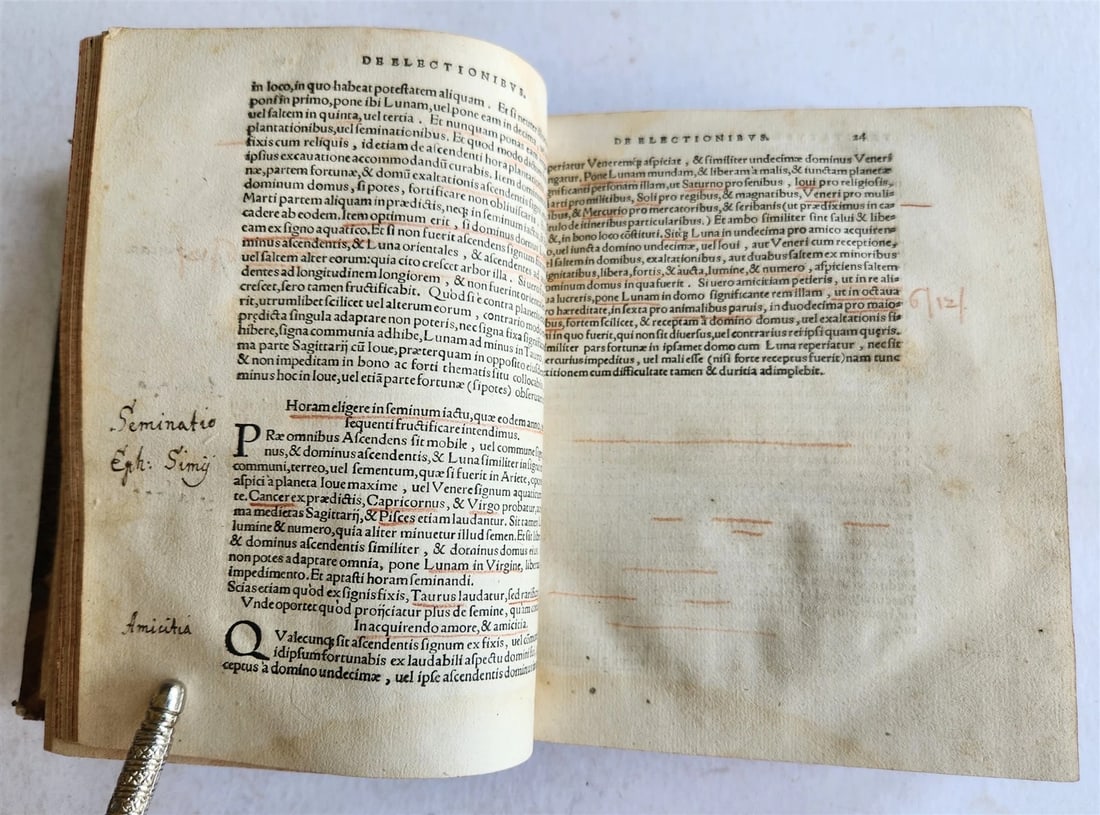 DE ELECTIONIBVS.
in loco, in quo habeat potestatem aliquam. Et si neuter
in primo, pone ibi Lunam, uel pone eam in decima,
uel saltem in quinta, uel tertia. Et nunquam ponas eam
plantationibus, uel seminationibus. Et quod modo
fixis cum reliquis, id etiam de ascendenti hora plantationis
ipsius excauatione accommodandũ curabis. Item
næ, partem fortunæ, & domũ exaltationis ascendentis
dominum domus, si potes, fortificare non obliuiscaris.
Marti partem aliquam in prædictis, neq; in seminum iactu,
cadere ab eodem. Item optimum erit, si dominus domus
eam ex signo aquatico. Et si non fuerit ascendens signum
minus ascendentis, & Luna orientales, & ascendentes ad
uel saltem alter eorum: quia cito crescet arbor illa. Si uero
dentes ad longitudinem longiorem, & non fuerint orientales
crescet, sero tamen fructificabit. Quòd si è contra
rit, utrumlibet scilicet uel alterum eorum, contrario modo
prędicta singula adaptare non poteris, nec signa fixa
hibere, signa communia adhibe, Lunam ad minus in Tauro
ma parte Sagittarij cũ Ioue, præterquam in opposito
& non impeditam in bono ac forti thematis situ
minus hoc in Ioue, uel etiã parte fortunæ (si potes)
Horam eligere in seminum iactu, quæ eodem anno,
sequenti fructificare intendimus.
PRæ omnibus Ascendens sit mobile, uel commune
nus, & dominus ascendentis, & Luna similiter in
communi, terreo, uel sementum, quæ si fuerit in Ariete,
aspici à planeta Ioue maxime, uel Venere signum
te. Cancer ex prædictis, Capricornus, & Virgo probatur,
ma medietas Sagittarij, & Pisces etiam laudantur. Sit tamen
lumine & numero, quia aliter minuetur illud semen. Et sit
& dominus ascendentis similiter, & dominus domus
non potes adaptare omnia, pone Lunam in Virgine,
impedimento. Et aptasti horam seminandi.
Scias etiam quòd ex signis fixis, Taurus laudatur, sed
Vnde oportet quòd proijciatur plus de semine,
In acquirendo amore, & amicitia.
QValecunq; sit ascendentis signum ex fixis, uel
id ipsum fortunabis ex laudabili aspectu domini
ceptus à domino undecimæ, uel ipse ascendentis
Seminatio
Eph: Simij
Amicitia
DE ELECTIONIBVS. 24
periatur Veneremq; aspiciat, & similiter undecimæ dominus Veneri
ngatur. Pone Lunam mundam, & liberam à malis, & iunctam planetæ
gnificanti personam illam, ut Saturno pro senibus, Ioui pro religiosis,
arti pro militibus, Soli pro regibus, & magnatibus, Veneri pro mulie
ibus, & Mercurio pro mercatoribus, & scribanis (ut prædiximus in ca-
tulo de itineribus particularibus.) Et ambo similiter sint salui & libe-
&, in bono loco cõstituti. Sitq; Luna in undecima pro amico acquirendo
uel iuncta domino undecimæ, uel Ioui, aut Veneri cum receptione,
el saltem in domibus, exaltationibus, aut duabus saltem ex minoribus
gnitatibus, libera, fortis, & aucta, lumine, & numero, aspiciens saltem
ominum domus in qua fuerit. Si uero amicitiam petieris, ut in re ali-
ua lucreris, pone Lunam in domo significante rem illam, ut in octaua
o hæreditate, in sexta pro animalibus paruis, in duodecima pro maio-
bus, fortem scilicet, & receptam à domino domus, uel exaltationis si-
i in quo fuerit, qui non sit diuersus, uel contrarius rei ipsi quam quæris.
militer pars fortunæ in ipsamet domo cum Luna reperiatur, nec sit
ercurius impeditus, uel mali esse (nisi forte receptus fuerit) nam tunc
titionem cum difficultate tamen & duritia adimplebit.
6/12/